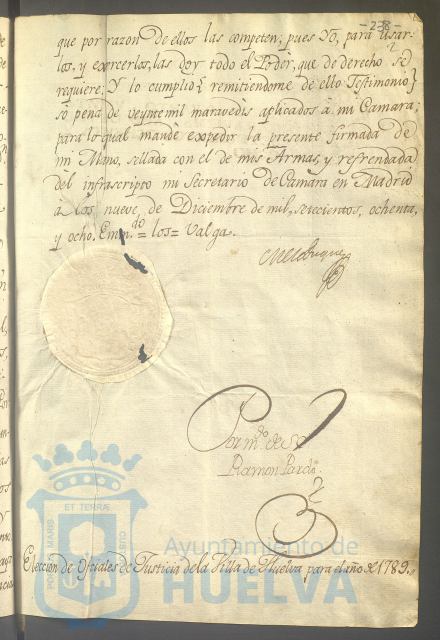 -238-
que por razon de ellos las competen; pues Yo, para usar-
las, y exercerlos, las doy todo el Poder, que de derecho se
requiere; Y lo cumplid { remitiendome de ello Testimonio }
só pena de veynte mil maravedis aplicados à mi Camara;
para lo qual mandé expedir la presente firmada de
mi Mano, sellada con el de mis Armas, y refrendada
del infrascripto mi Secretario de Camara en Madrid
à los nueve de Diciembre de mil, setecientos, ochenta,
y ocho. Emm.do = los = Valga.
Por m.do de S.
Ramon Pardo.
Eleccion de Oficiales de Justicia de la Villa de Huelva para el año de 1789.
PORTUS MARIS
ET TERRÆ
CUSTODIA
Ayuntamiento de
HUELVA